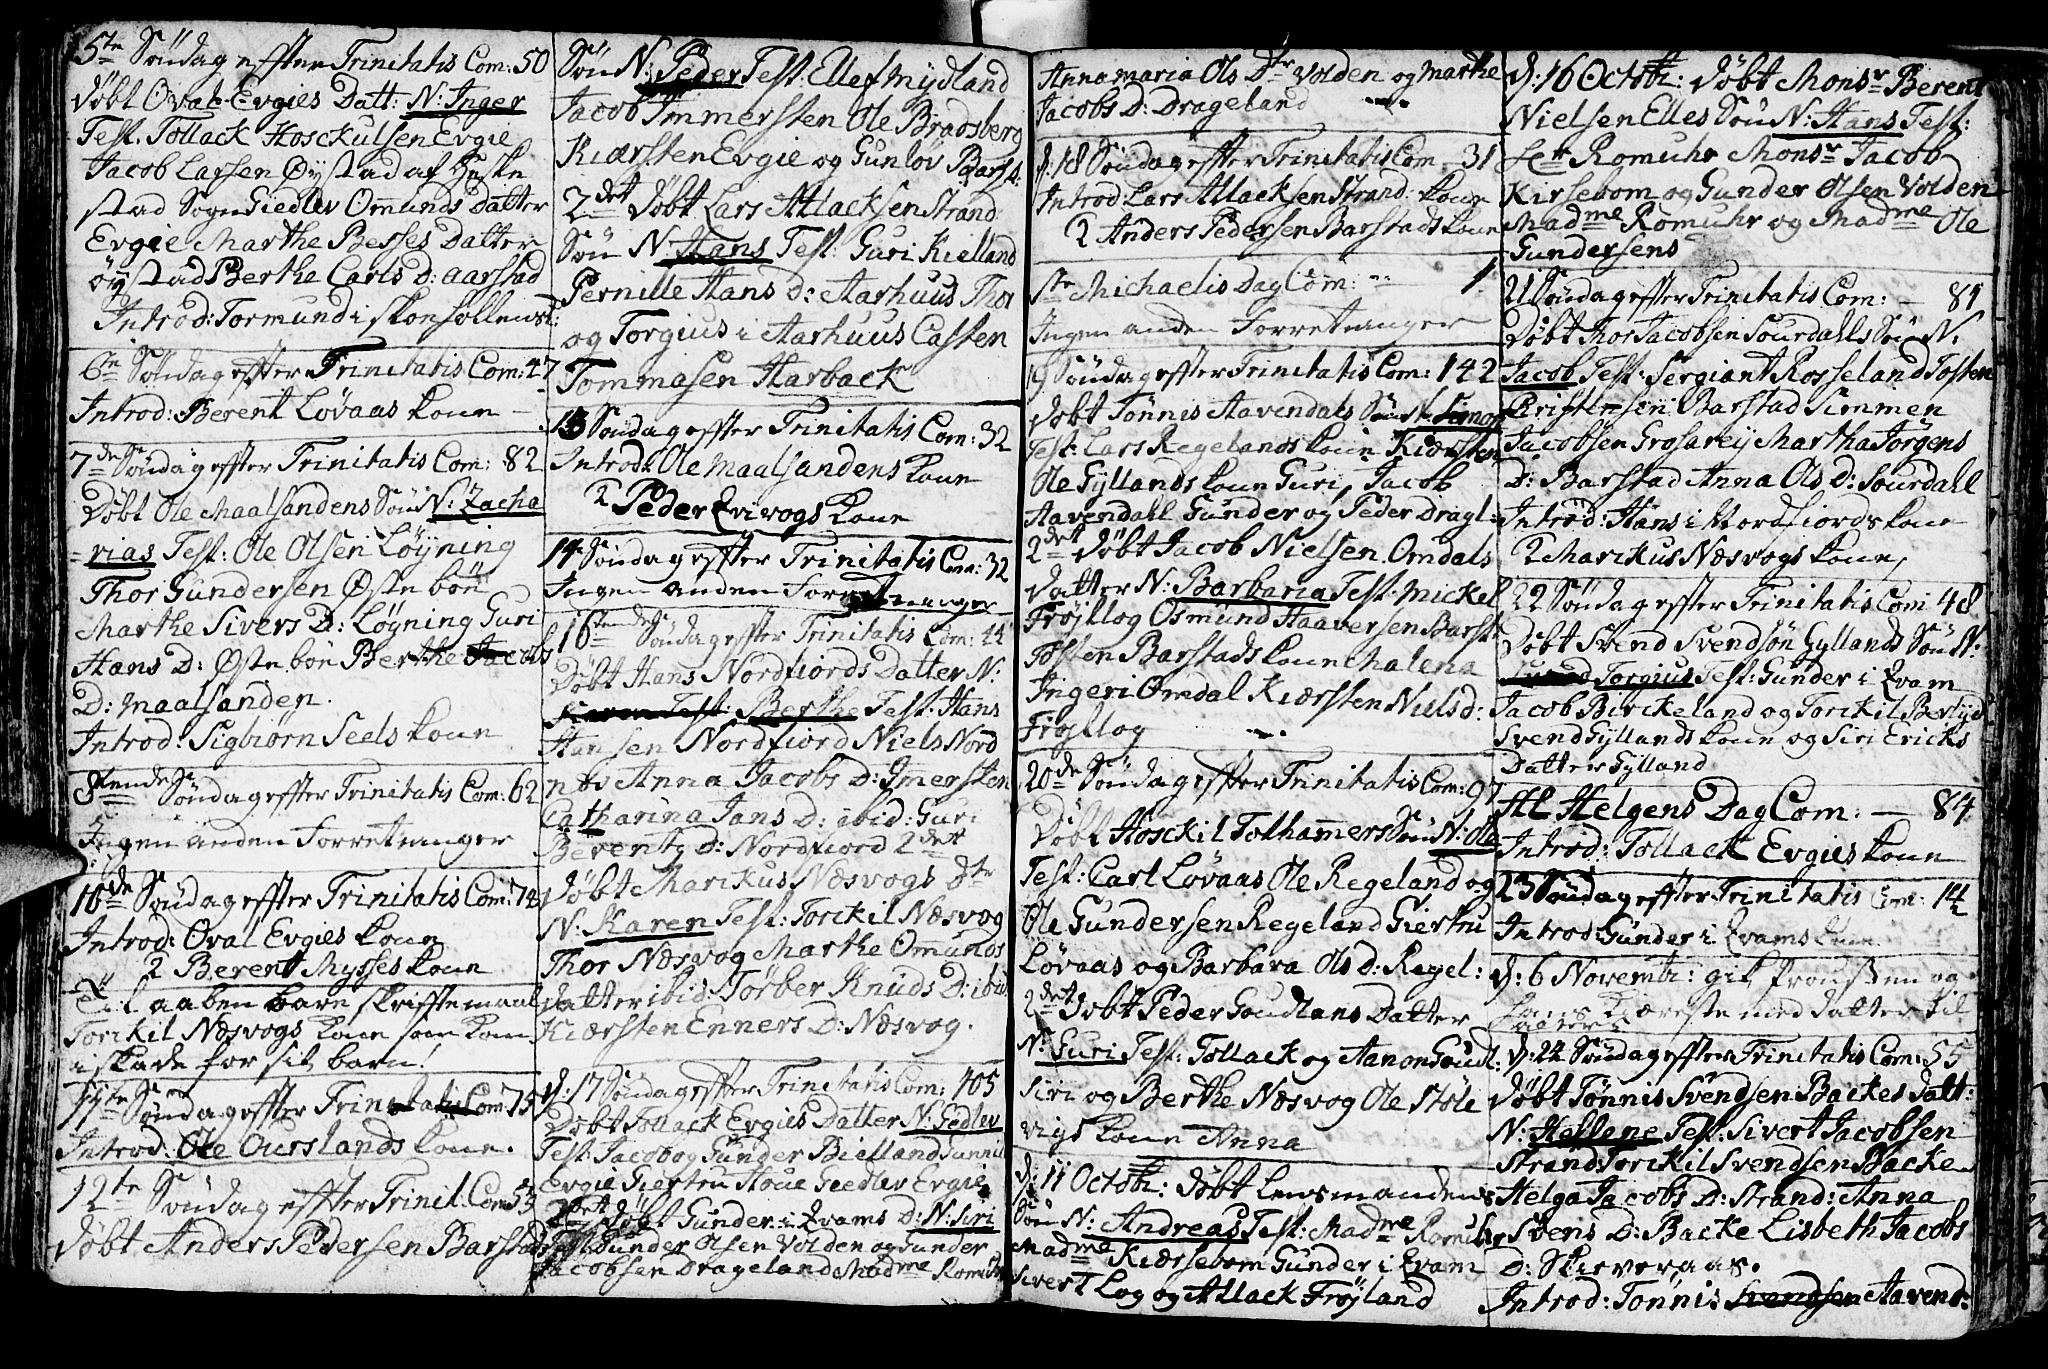 5te Söndag effter Trinitatis Com: 50
Döbt Oval Evgies Datt: N: Inger
Test. Tollack Hosckulsen Evgie
Jacob Larsen Öystad af Heske
stad Sogn Giedlev Omunds Datter
Evgie Marthe Besses Datter
öystad Berthe Carls D: Aarstad
Introd: Tormund i skonsollens K:
6te Söndag effter Trinitatis Com: 47
Introd: Berent Lövaas Kone
7de Söndag effter Trinitatis Com: 82
Döbt Ole Maalsandens Sön N: Zacha
-rias Test: Ole Olsen Löyning
Thor Gundersen Östebön
Marthe Sivers D: Löyning Guri
Hans D: Östebön Berthe Jacobs
D: Maalsanden.
Introd: Sigbiorn Seels Kone
8tende Söndag effter Trinitatis Com: 62
Ingen anden Forretninger
10de Söndag effter Trinitatis Com: 74
Introd: Oval Evgies Kone
2 Berent Mysses Kone
Til aabenbare skrifftemaal
Torkil Næsvogs Kone som kom
i skade for sit barn!
11te Söndag effter Trinitatis Com: 75
Introd: Ole Ouerslands Kone.
12te Söndag effter Trinit: Com: 53
Döbt Anders Pedersen Barstads
Sön N: Peder Test: Ellef Mydland
Jacob Immersten Ole Bradsberg
Kiærsten Evgie og Gunlöv Barst:
2det Döbt Lars Atlacksen Strand:
Sön N: Hans Test: Guri Kielland
Pernille Hans D: Aarhuus Thor
og Torgius i Aarhuus Casten
Tommasen Harback
13 Söndag effter Trinitatis Com: 32
Introd: Ole Maalsandens Kone
2 Peder Eivogs Kone
14 Söndag effter Trinitatis Com: 32
Ingen anden Forretninger
16tende Söndag effter Trinitatis Com: 44
Döbt Hans Nordfiords Datter N:
Karen Test: Berthe Test: Hans
Hansen Nordfiord Niels Nord
næs Anna Jacobs D: Imersten
Catharina Jans D: ibid: Guri
Berenty D: Nordfiord 2det
Döbt Marikus Næsvogs Dtr
N: Karen Test: Torckil Næsvog
Thor Næsvog Marthe Omunds
Datter ibid: Törber Knuds D: ibid
Kiærsten Enners D: Næsvog.
D: 17 Söndag effter Trinitatis Com: 105
Döbt Tollack Evgies Datter N: Gedlev
Test: Jacob og Gunder Bielland Sunnil
Evgie Giertru Houe Gedlev Evgie
2det Döbt Gunder i Qvams D: N: Siri
Test: Gunder Olsen Volden og Gunder
Jacobsen Drageland Madme Romuhr
Anna Maria Ols Dtr Volden og Marthe
Jacobs D: Drageland
D: 18 Söndag effter Trinitatis Com: 31
Introd: Lars Atlacksen Strand: Kone
2 Anders Pedersen Barstads Kone
Ste Michaelis Dag Com: 1
Ingen anden Forretninger
19 Söndag effter Trinitatis Com: 142
Döbt Tönnis Aavendals Sön N: Simon
Test: Lars Regelands Kone Kiærsten
Ole Gyllands Kone Guri, Jacob
Aavendall Gunder og Peder Dragl:
2det Döbt Jacob Nielsen Omdals
Datter N: Barbaria Test: Mickel
Fröjtlog Osmund Haaversen Barst:
Tosten Barstads Kone Malena
Ingeri Omdal Kiærsten Niels D:
Fröjtlog
20de Söndag effter Trinitatis Com: 97
Döbt Hosckil Tolhammers Sön N: Ole
Test: Carl Lövaas Ole Regeland og
Ole Gundersen Regeland Giertru
Lövaas og Barbara Ols D: Regel:
2det Döbt Peder Goudlans Datter
N: Guri Test: Tollack og Aanon Goudl:
Siri og Berthe Næsvog Ole Stöle
vigs Kone Anna
D: 11 Octobr: Döbt Lensmandens
Sön N: Andreas Test: Madme Romuhr
Madme Kiersebom Gunder i Qvam
Sivert Log og Atlack Fröjland
D: 16 Octobr: Döbt Monsr Berent
Nielsen Elles Sön N: Hans Test:
Romuhr Monsr Jacob
Kirsebom og Gunder Olsen Volden
Madme Romuhr og Madme Ole
Gundersens
21 Söndag effter Trinitatis Com: — 81
Döbt Thor Jacobsen Sourdalls Sön N:
Jacob Test: Sergiant Rosseland Tosten
Christensen Barstad Simmen
Jacobsen Grosarey Martha Jörgens
D: Barstad Anna Ols D: Sourdall
Introd: Hans i Nordfiords Kone
2 Marikus Næsvogs Kone,
22 Söndag effter Trinitatis Com 48
Döbt Svend Svendsön Gyllands Sön N:
Torgius Test: Gunder i Qvam
Jacob Birckeland og Torckil Berlyd
Svend Gyllands Kone og Siri Ericks
Datter Gylland
All Helgens Dag Com: — 84
Introd: Tollack Evgies Kone
23 Söndag effter Trinitatis Com: 14
Introd: Gunder i Qvams Kone
D: 6 Novembr: gik Provsten og
Hans Kiæreste med datter til
alters
D: 24 Söndag effter Trinitatis Com: 55
Döbt Tönnis Svendsen Backes Datt:
N: Hellene Test: Sivert Jacobsen
Strand Torckil Svendsen Backe
Helga Jacobs D: Strand: Anna
Svens D: Backe Lisbeth Jacobs
D: Skieveraas.
Introd: Tönnis Svendsen Aavend: